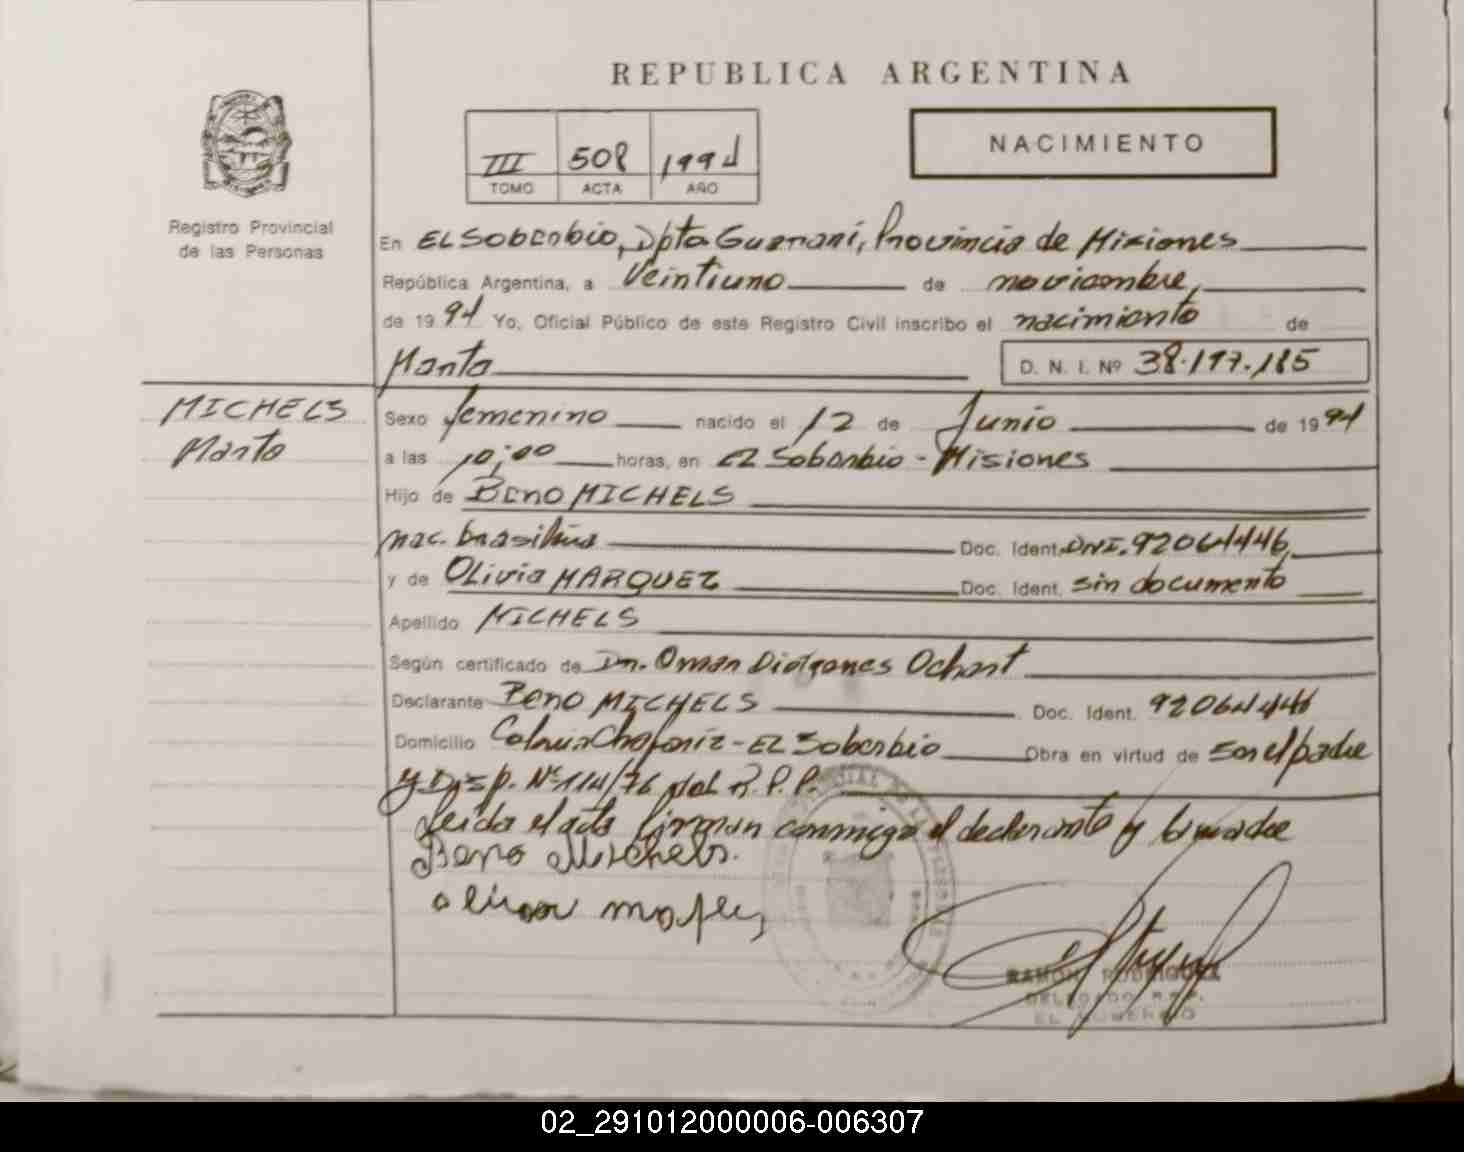 REPUBLICA ARGENTINA
NACIMIENTO
III 508 1994
TOMO ACTA AÑO
Registro Provincial
de las Personas
En EL Soberbio, Dpto Guarani, Provincia de Misiones
República Argentina, a Veintiuno de noviembre,
de 1994 Yo, Oficial Público de este Registro Civil inscribo el nacimiento de
Marta D. N. I. Nº 38.197.185
MICHELS
Marta
Sexo femenino nacido el 12 de Junio de 1994
a las 10:00 horas, en EL Soberbio - Misiones
Hijo de Beno MICHELS
nac. brasilina Doc. Ident. DNI. 92064446,
y de OLivia MARQUEZ Doc. Ident. sin documento
Apellido MICHELS
Según certificado de Dr. Omar Diógenes Ochart
Declarante Beno MICHELS Doc. Ident. 92064446
Domicilio Colonia - EL Soberbio Obra en virtud de ser el padre
y Disp. Nº 114/76 del R.P.P.
Leida el acta firman conmigo el declarante y la madre
Beno Michels.
RAMON RODRIGUEZ
DELEGADO R.P.P.
EL SOBERBIO
02_291012000006-006307